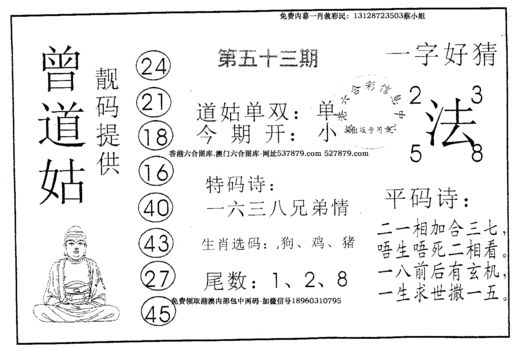 免费内幕一肖救彩民：13128723503蔡小姐
曾道姑
靓码提供
24
21
18
16
40
43
27
45
第五十三期
道姑单双：单
今期开：小
香港六合图库.澳门六合图库-网址537879.com 527879.com
特码诗：
一六三八兄弟情
生肖选码：,狗、鸡、猪
尾数：1、2、8
免费领取港澳内部包中两码-加微信号18960310795
一字好猜
2 3
法
5 8
平码诗：
二一相加合三七，
唔生唔死二相看。
一八前后有玄机，
一生求世撒一五。